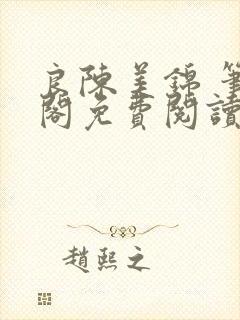 良陳美錦 筆
閣免費閱讀
趙熙之